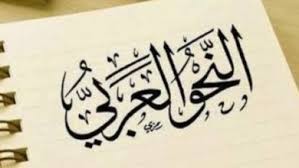 النَّحوُ العَرَبيُّ